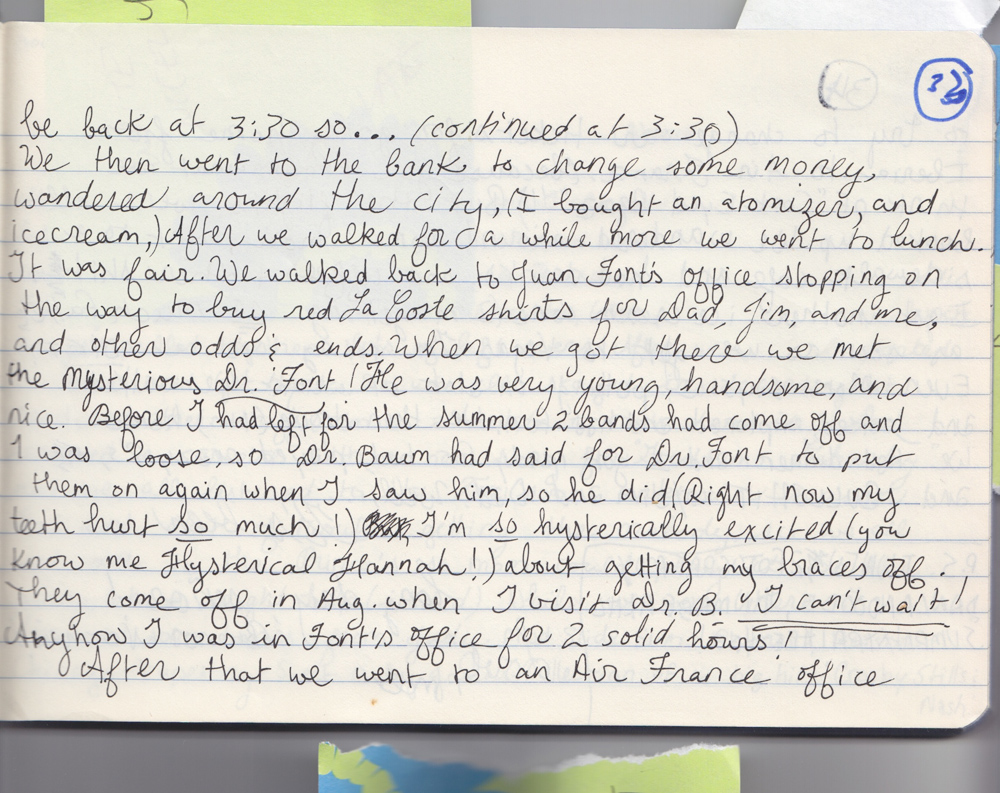 32
be back at 3:30 so... (continued at 3:30)
We then went to the bank to change some money,
wandered around the city, (I bought an atomizer, and
icecream,) After we walked for a while more we went to lunch.
It was fair. We walked back to Juan Font's office stopping on
the way to buy red La Coste shirts for Dad, Jim, and me,
and other odds & ends. When we got there we met
the mysterious Dr. Font! He was very young, handsome, and
nice. Before I had left for the summer 2 bands had come off and
1 was loose, so Dr. Baum had said for Dr. Font to put
them on again when I saw him, so he did (Right now my
teeth hurt so much!) I'm so hysterically excited (you
know me Hysterical Hannah!) about getting my braces off.
They come off in Aug. when I visit Dr. B. I can't wait!
Anyhow I was in Font's office for 2 solid hours!
After that we went to an Air France office